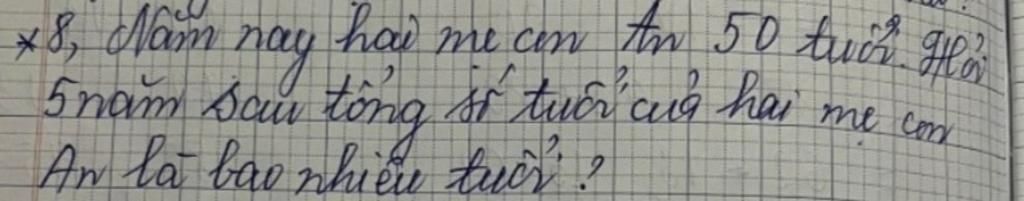 *8, Năm nay hai mẹ con An 50 tuổi. Hỏi
5 năm sau tổng số tuổi của hai mẹ con
An là bao nhiêu tuổi?